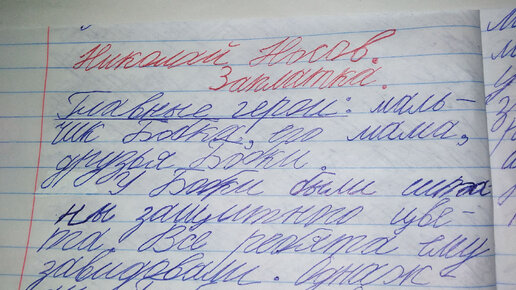 Николай Носов.
Заплатка.
Главные герои: маль-
чик Бобка, его мама,
друзья Бобки.
У Бобки были шта-
ны защитного цве-
та. Все ребята ему
завидовали. Однаж-